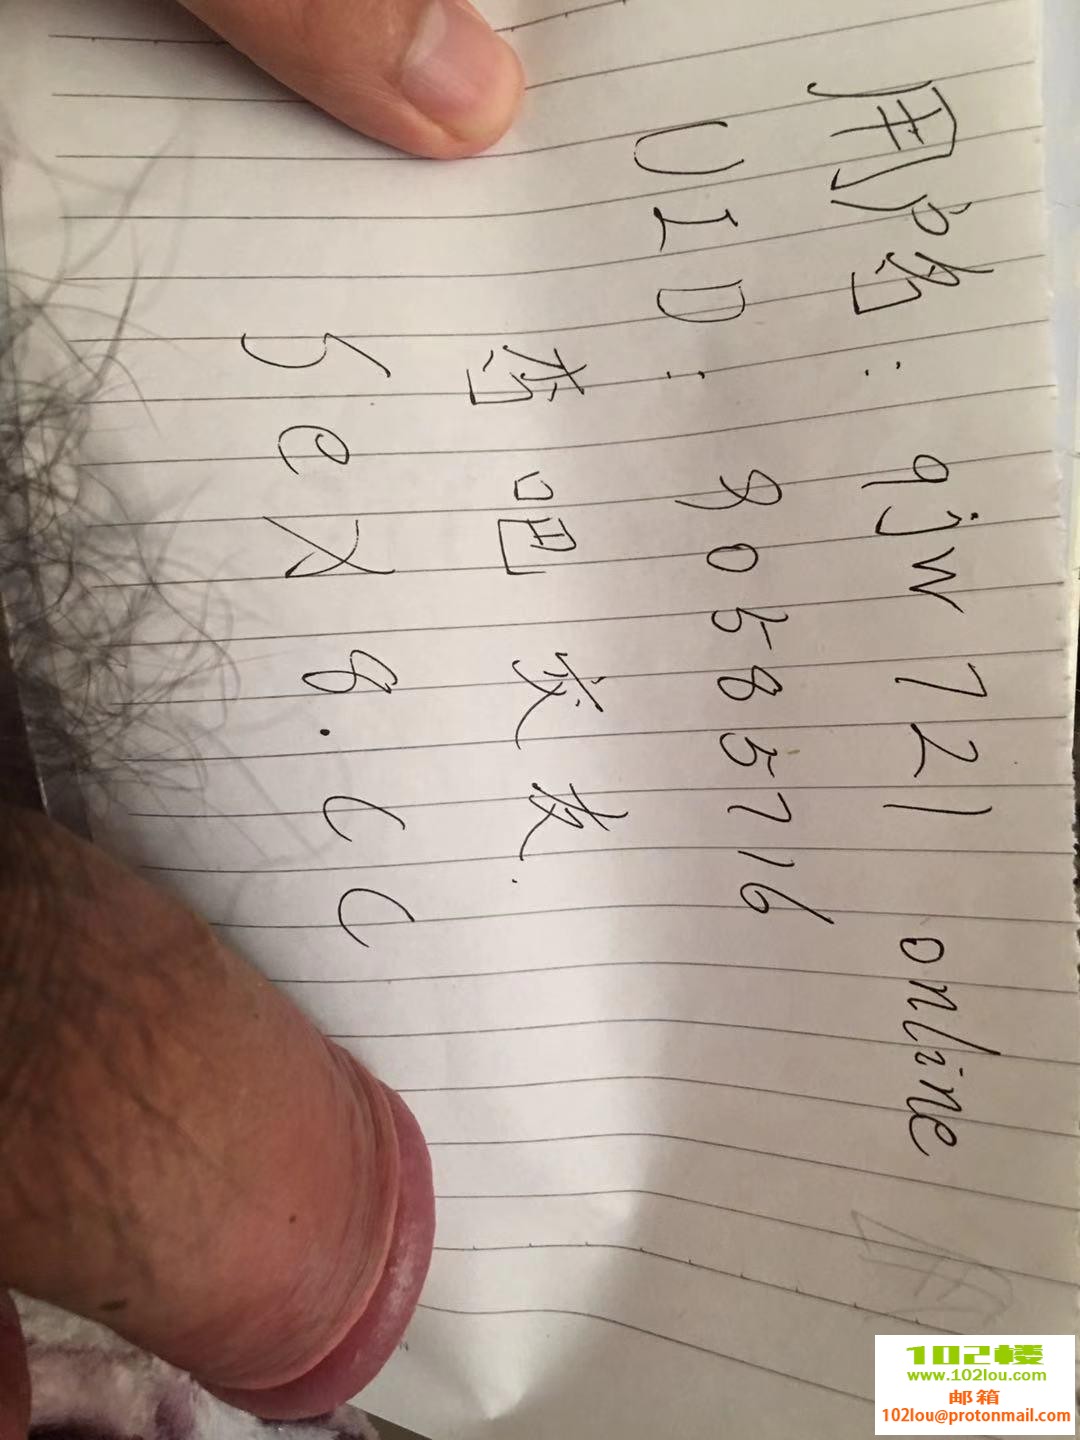 用户名: qjw 721 online
UID: 80585716
杏吧 发发.
sex8.cc
102楼
www.102lou.com
邮箱
102lou@protonmail.com